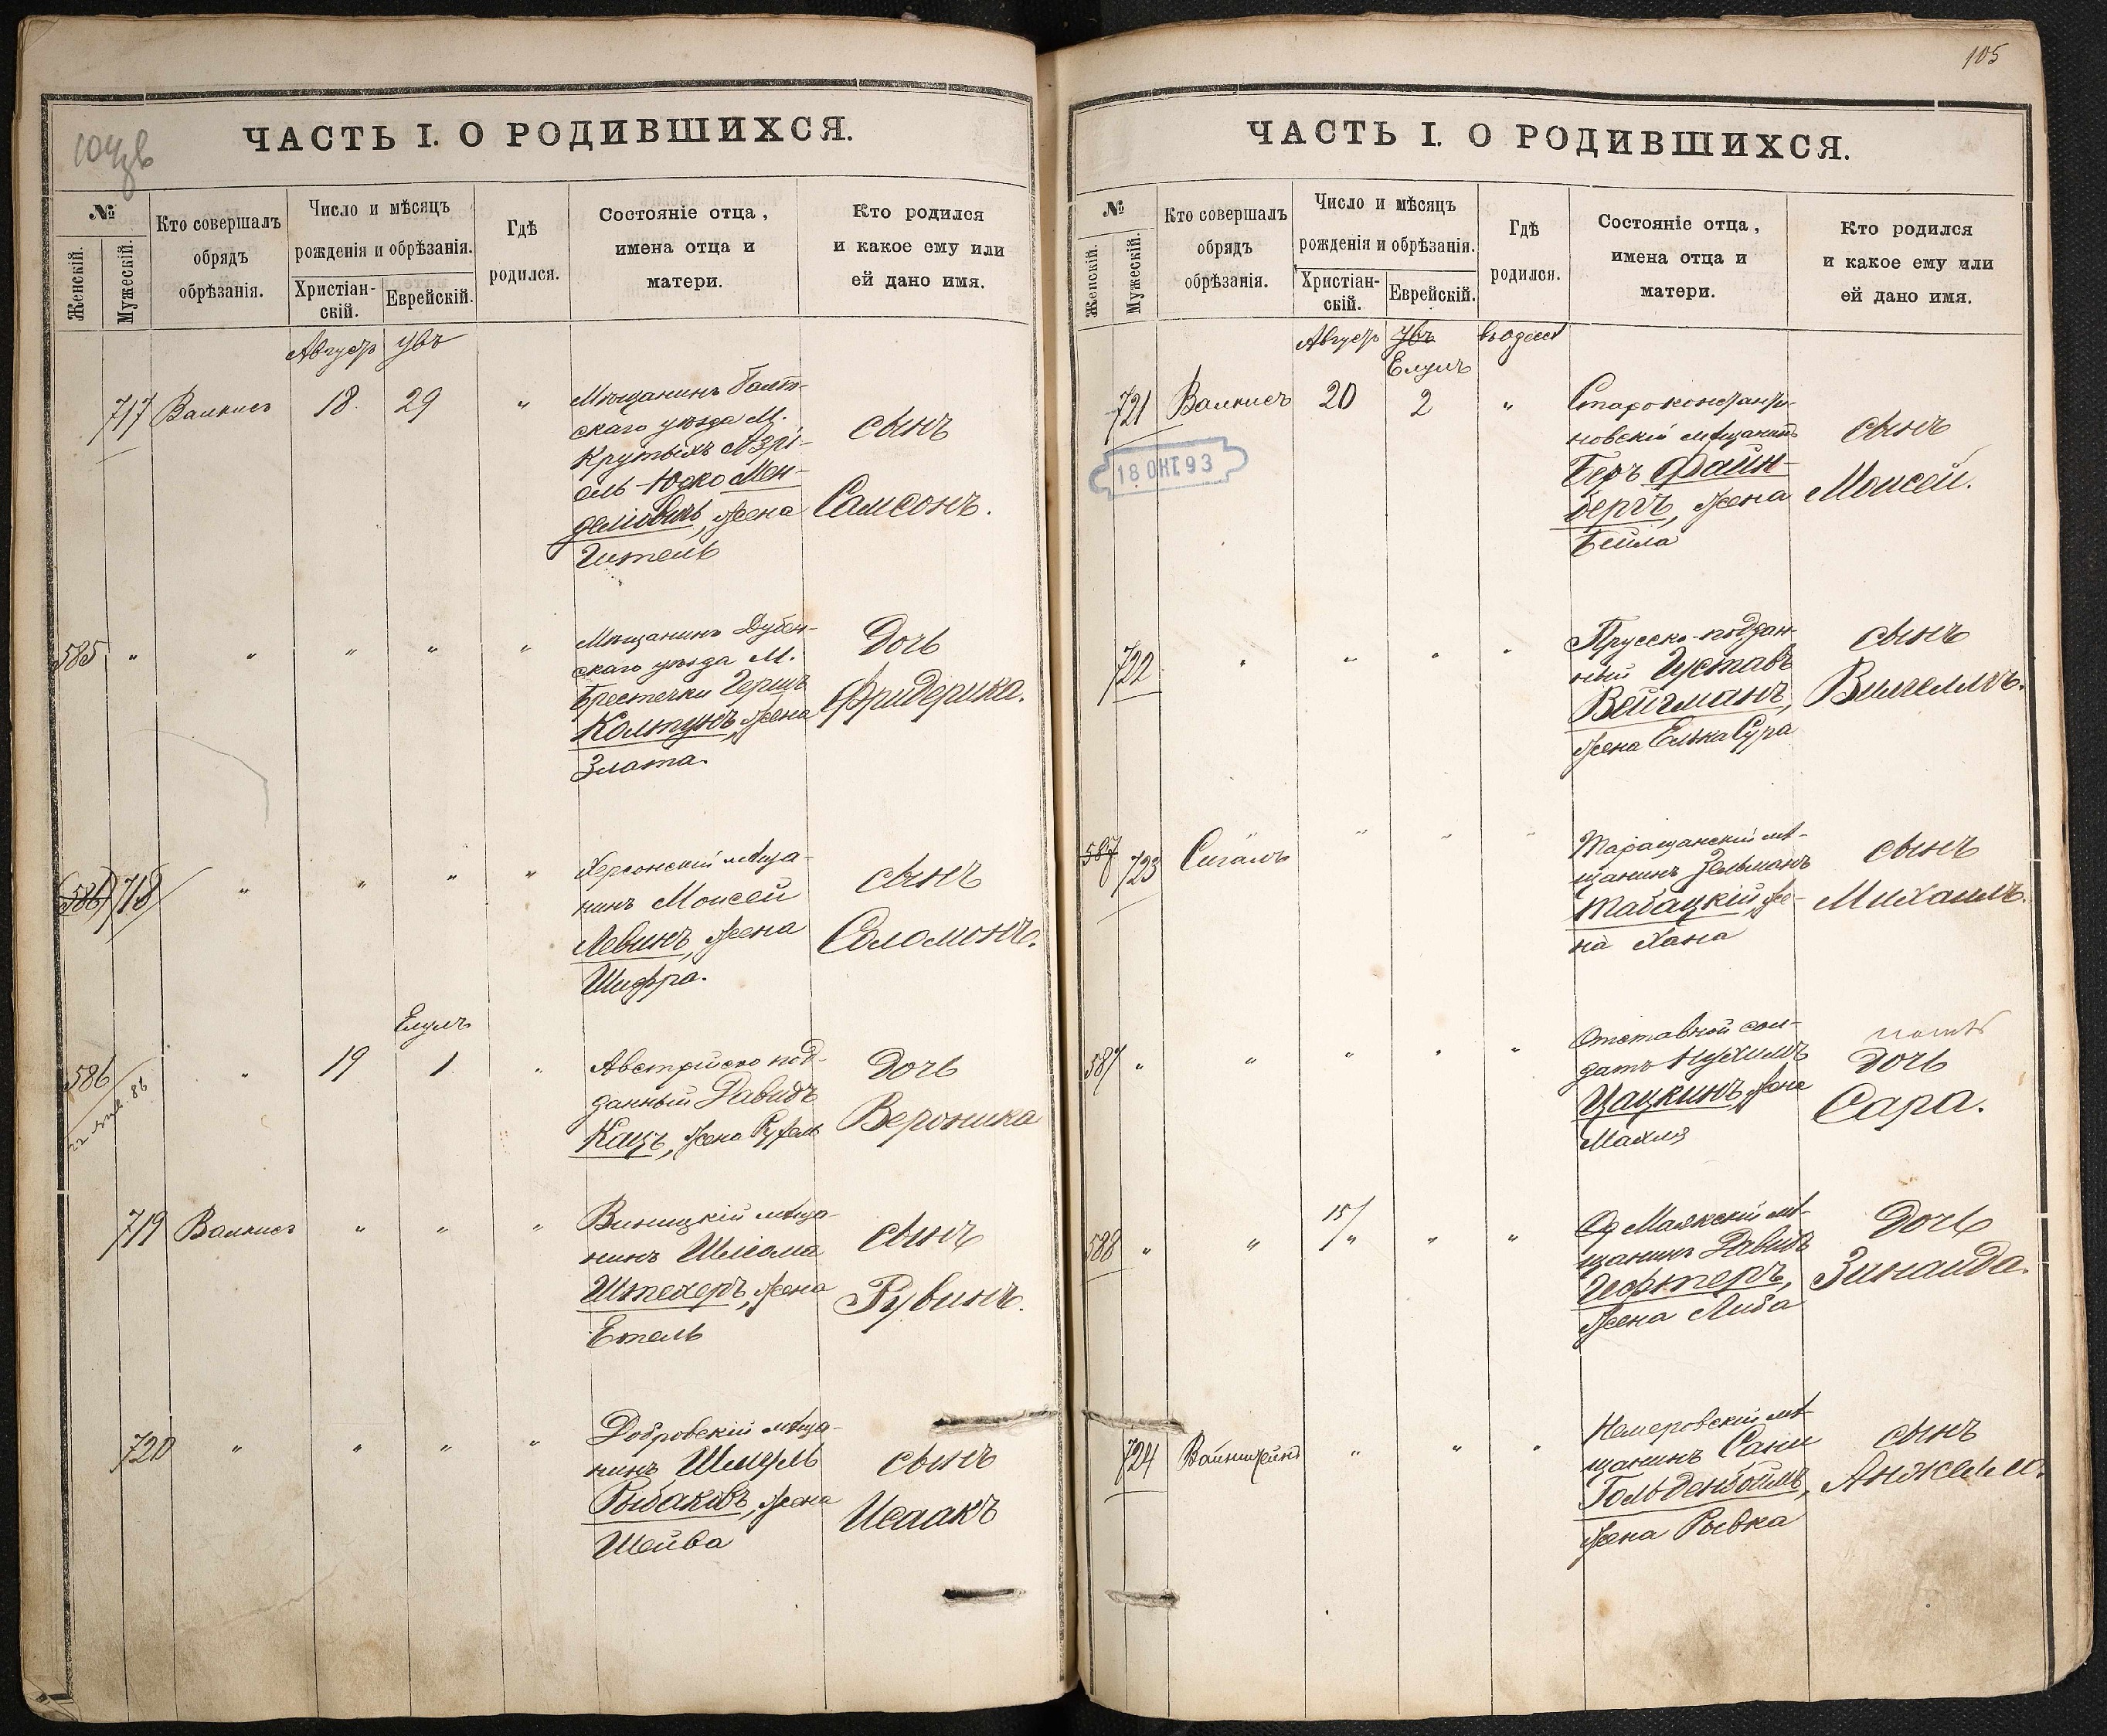 105
ЧАСТЬ I. О РОДИВШИХСЯ.
№
Женскій.
Мужескій.
Кто совершалъ
обрядъ
обрѣзанія.
Число и мѣсяцъ
рожденія и обрѣзанія.
Христіан-
скій.
Еврейскій.
Гдѣ
родился.
Состояніе отца,
имена отца и
матери.
Кто родился
и какое ему или
ей дано имя.
717
18
29
"
Мѣщанинъ Балт-
скаго уѣзда М.
Крутыхъ Азрі-
ель-Юдко Мен-
деліовичъ, жена
Гитель
сынъ
Самсонъ.
585
"
"
"
"
"
Мѣщанинъ Дубен-
скаго уѣзда М.
Берестечки Гершъ
Колтунъ, жена
Злата.
Дочь
Фридерика.
586
718
"
"
"
"
Херсонскій мѣща-
нинъ Моисей
Левинъ, жена
Шифра.
сынъ
Соломонъ.
Елулъ
586
"
19
1
"
Австрійско под-
данный Давидъ
Кацъ, жена
Дочь
Вероника
719
"
"
"
Виницкій мѣща-
нинъ Шліома
Штехеръ, жена
Етель
сынъ
Рувинъ.
720
"
"
"
"
Добровскій мѣща-
нинъ Шмуль
Рыбаковъ, жена
Шейва
сынъ
Исаакъ
ЧАСТЬ I. О РОДИВШИХСЯ.
№
Женскій.
Мужескій.
Кто совершалъ
обрядъ
обрѣзанія.
Число и мѣсяцъ
рожденія и обрѣзанія.
Христіан-
скій.
Еврейскій.
Гдѣ
родился.
Состояніе отца,
имена отца и
матери.
Кто родился
и какое ему или
ей дано имя.
Елулъ
721
20
2
"
18 ОКТ. 93
Староконстанти-
новскій мѣщанинъ
Беръ Файн-
бергъ, жена
Бейла
сынъ
Моисей.
722
"
"
"
"
Прусско-поддан-
ный Густавъ
Вейгманъ,
жена Елька Сура
сынъ
Вилгелмъ.
587
723
Сигалъ
"
"
"
Таращанскій мѣ-
щанинъ Зельманъ
Табацкій, же-
на Хана
сынъ
Михаилъ.
587
"
"
"
"
"
Отставной сол-
датъ Нухимъ
Цацкинъ, жена
Махля
Дочь
Сара.
588
"
"
15/
"
"
"
Маякскій мѣ-
щанинъ Давидъ
Гефтеръ,
жена Либа
Дочь
Зинаида.
724
"
"
"
Немеровскій мѣ-
щанинъ Сани
Гольденбоимъ,
жена Рывка
сынъ